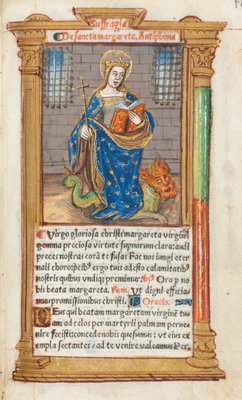 Suffragia
De sancta margareta. Antiphona
Virgo gloriosa christi margareta virginū
gemma preciosa virtute supnorum clara: audi
preces nostras corā te fusas Fac nos iungi eter
nali choro
tergo tuis adesto calamitatib⁹
nostris quibus vndiq; premimur Ora p no
bis beata margareta. Vt digni efficia
mur promissionibus christi. Oratio.
Deus qui beatam margaretam virginē tuā
am ad celos per martyrii palmam perue
nire fecisti: concede nobis quesumus: vt eius ex
empla sectantes, ad te venire valeamus Per